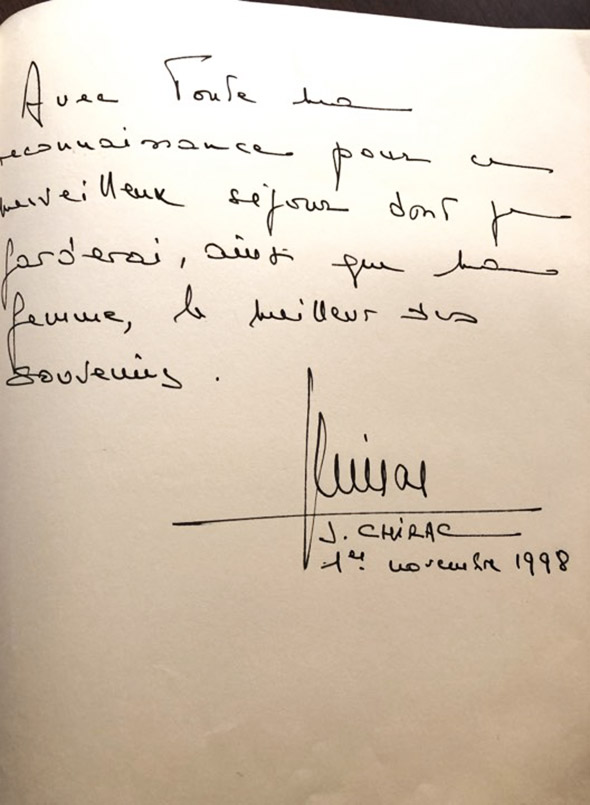 Avec Toute ma
reconnaissance pour ce
merveilleux séjour dont je
garderai, ainsi que ma
femme, le meilleur des
souvenirs.
J. CHIRAC
1er novembre 1998